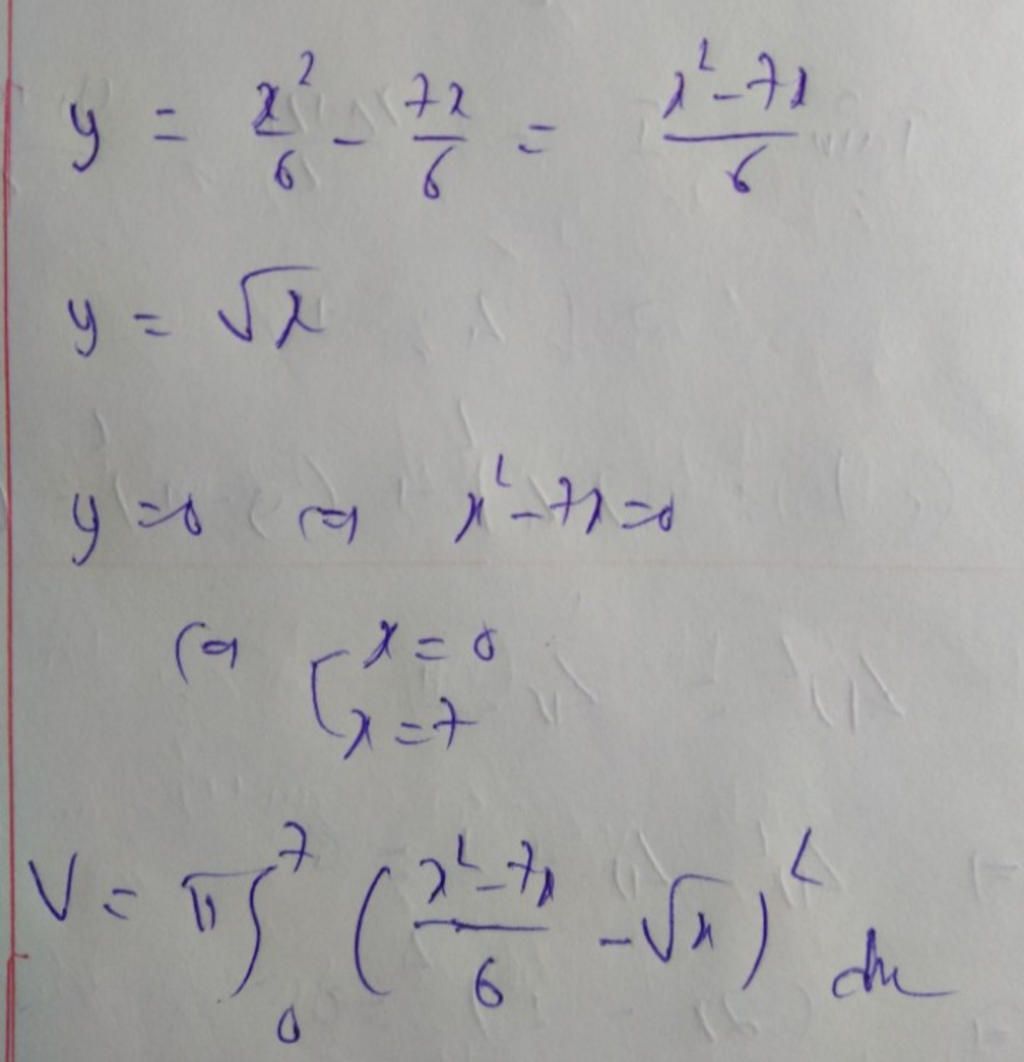 y = x²/6 - 7x/6 = (x² - 7x)/6
y = √x
y = 0 ⇔ x² - 7x = 0
⇔ [ x = 0
x = 7
V = π ∫₀⁷ ((x² - 7x)/6 - √x)² dx